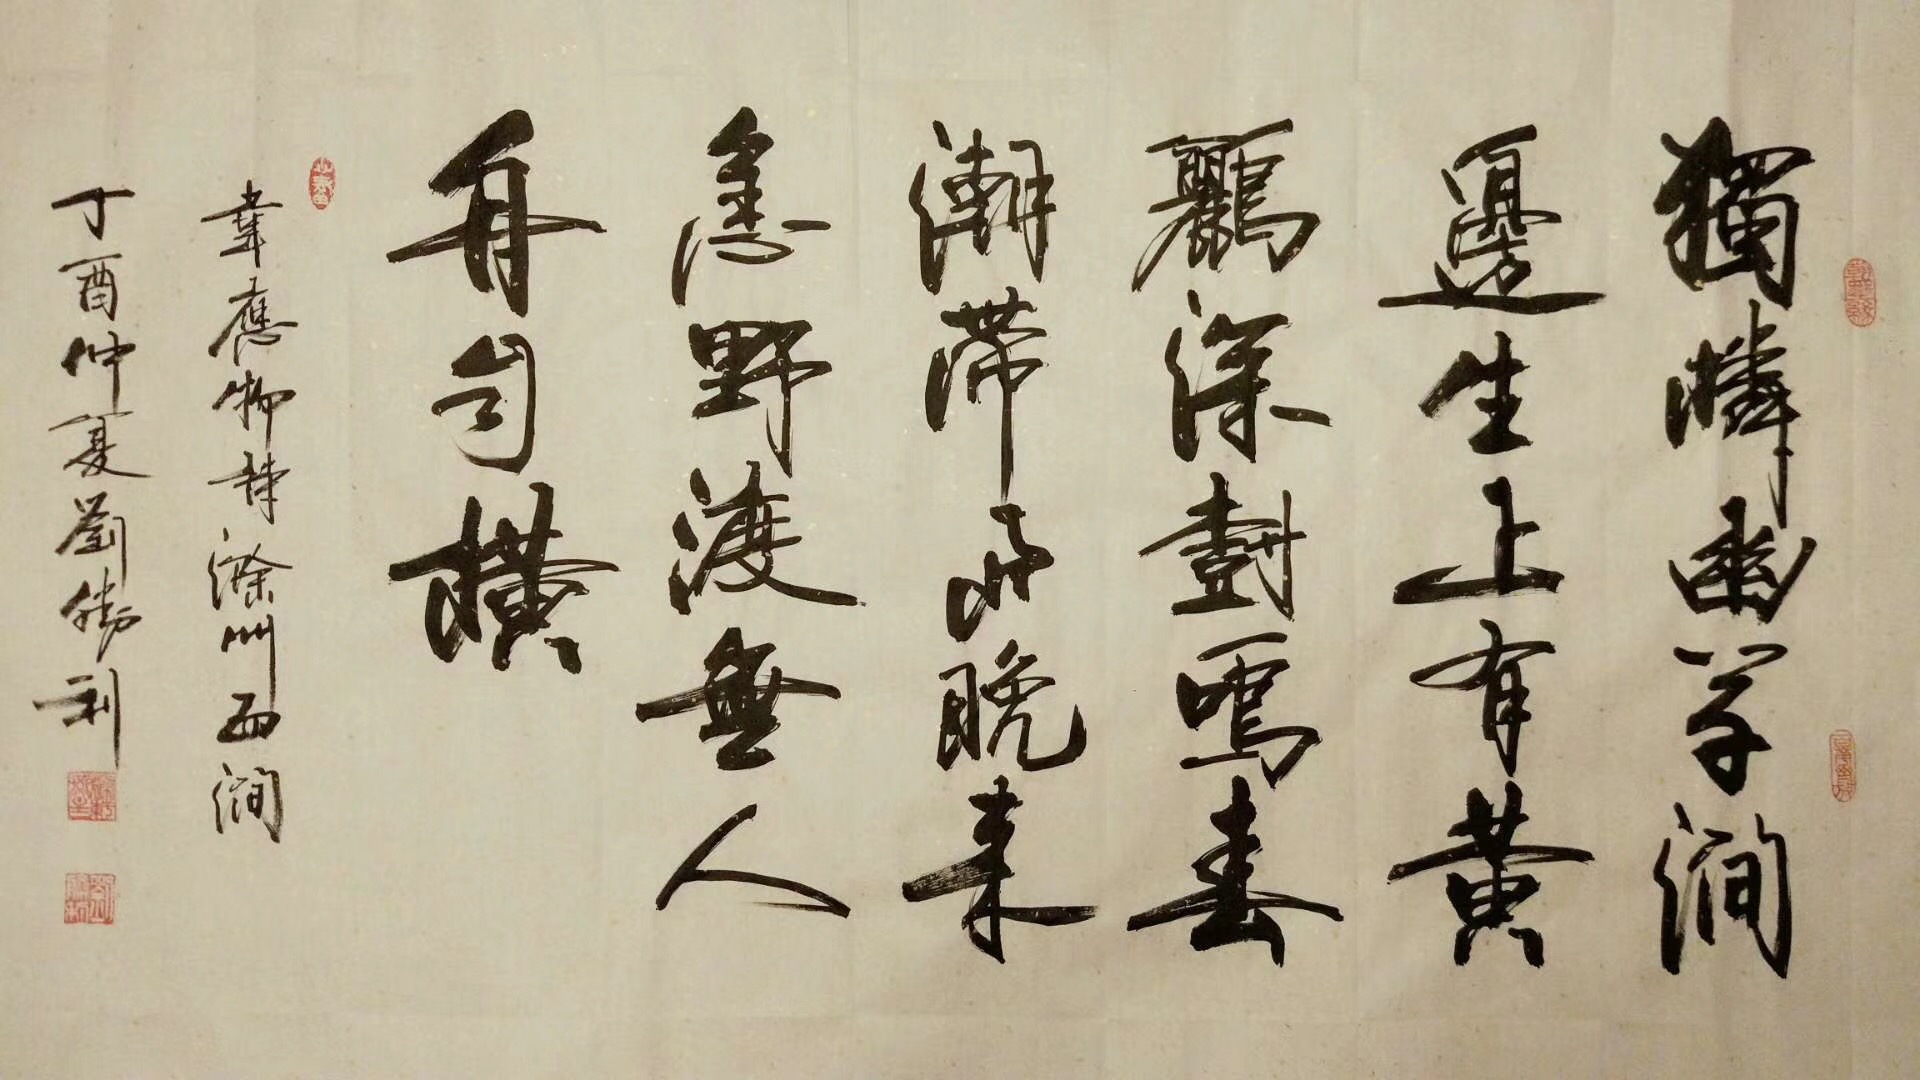 獨憐幽草澗
邊生上有黃
鸝深樹鳴春
潮帶雨晚來
急野渡無人
舟自橫
韋應物詩滁州西澗
丁酉仲夏劉勝利